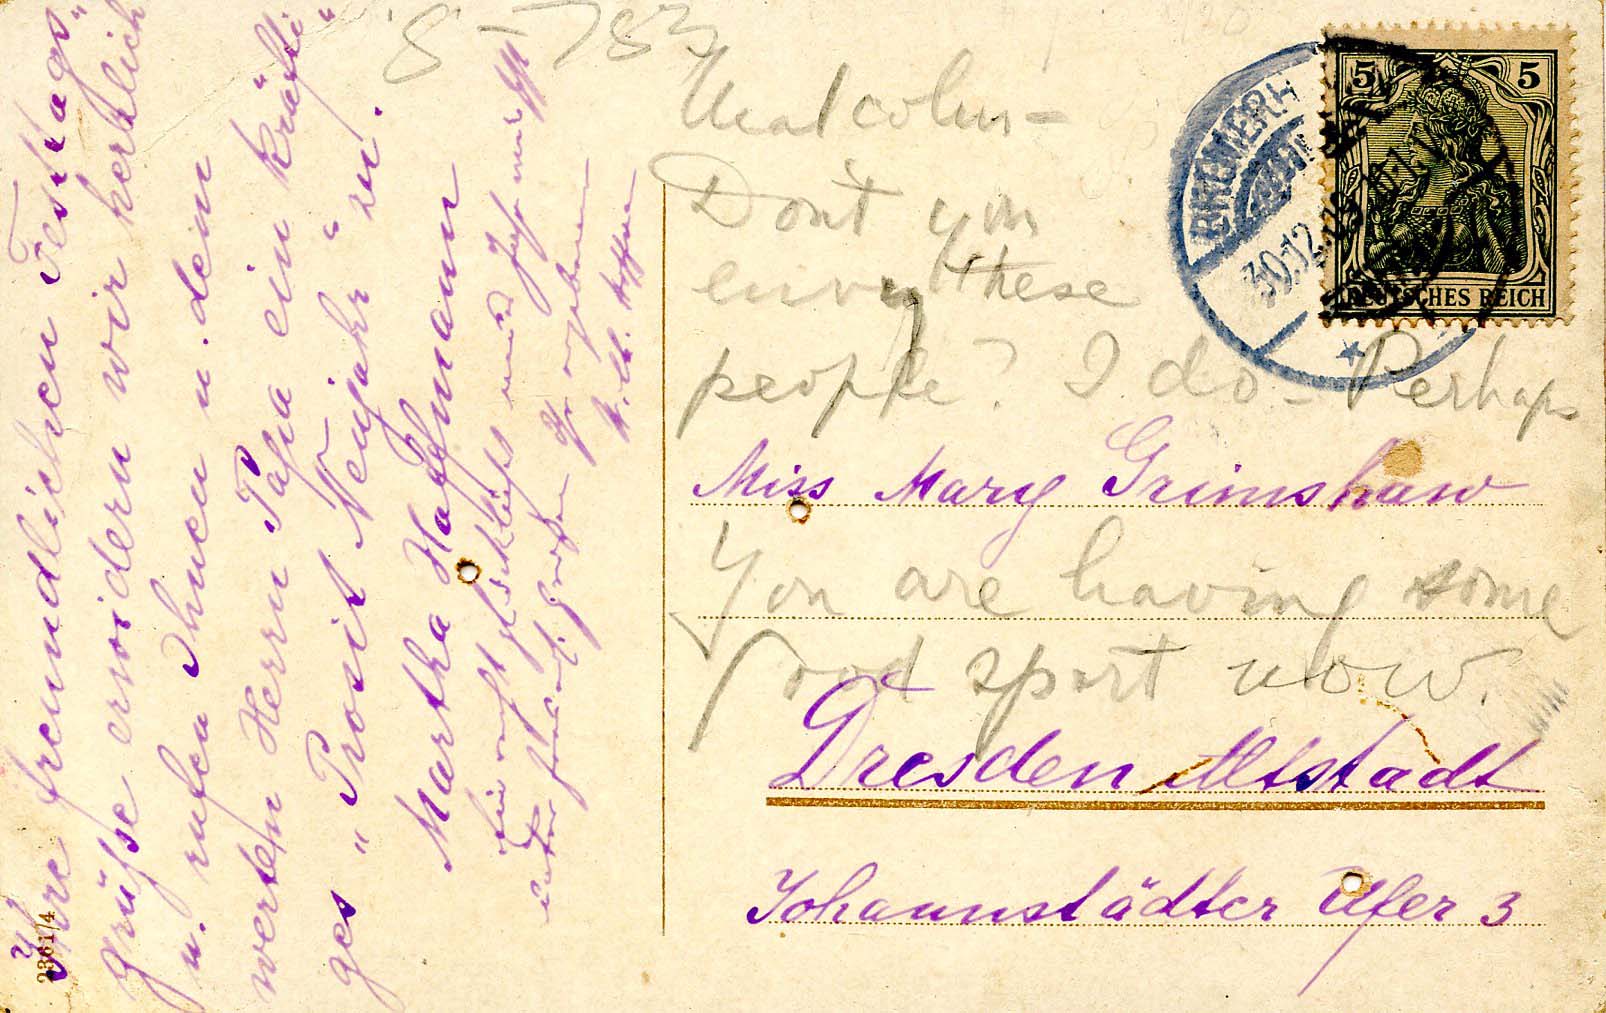 Ihre freundlichen Festtags"
grüße erwidern wir herzlich
u. rufen Ihnen u. dem
werten Herrn Papa ein "kräfti"
ges "Prosit Neujahr" zu.
Martha Hoffmann
8-783
Malcolm-
Dont you
envy these
people? I do - Perhaps
Miss Mary Grimshaw
You are having some
good sport now.
Dresden Altstadt
Johannstädter Ufer 3
30.12.
5 5
DEUTSCHES REICH
23614